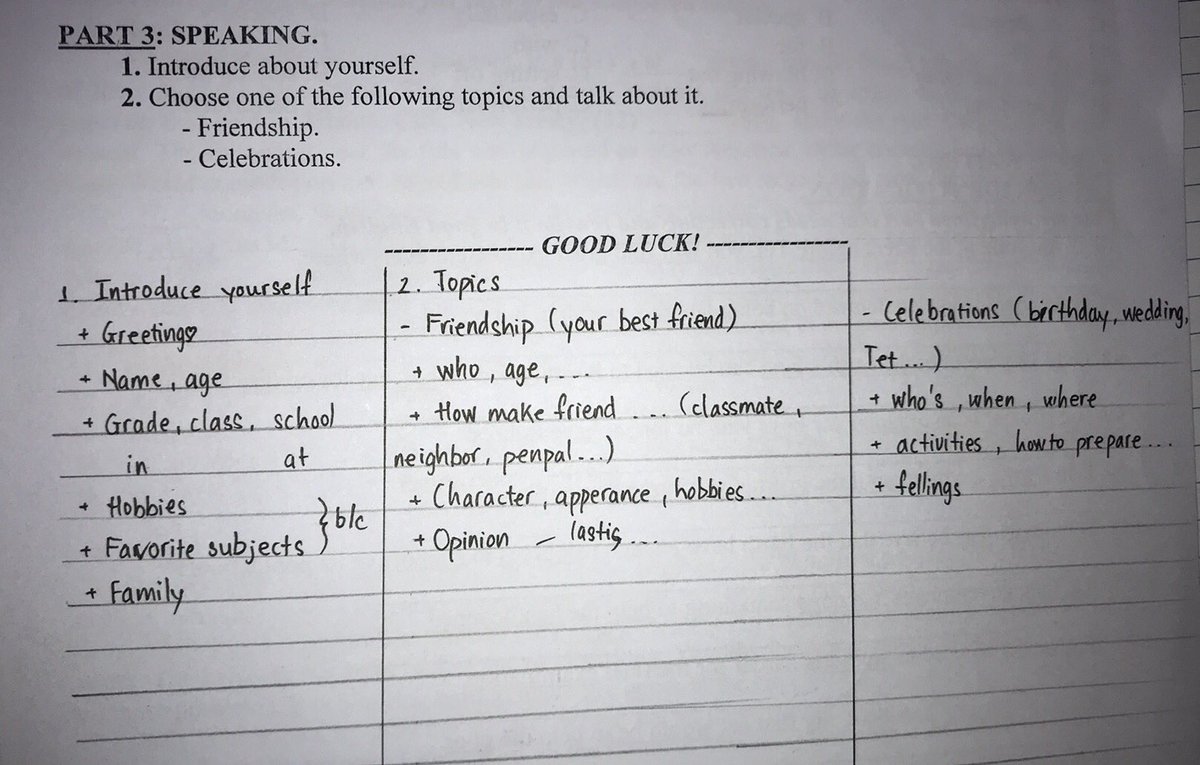 PART 3: SPEAKING.
1. Introduce about yourself.
2. Choose one of the following topics and talk about it.
- Friendship.
- Celebrations.
------------------ GOOD LUCK! ------------------
1. Introduce yourself
+ Greeting
+ Name, age
+ Grade, class, school
in at
+ Hobbies
+ Favorite subjects } b/c
+ Family
2. Topics
- Friendship (your best friend)
+ who, age, ...
+ How make friend .... (classmate,
neighbor, penpal...)
+ Character, apperance, hobbies...
+ Opinion – lastig...
- Celebrations (birthday, wedding,
Tet...)
+ who's, when, where
+ activities, how to prepare...
+ fellings